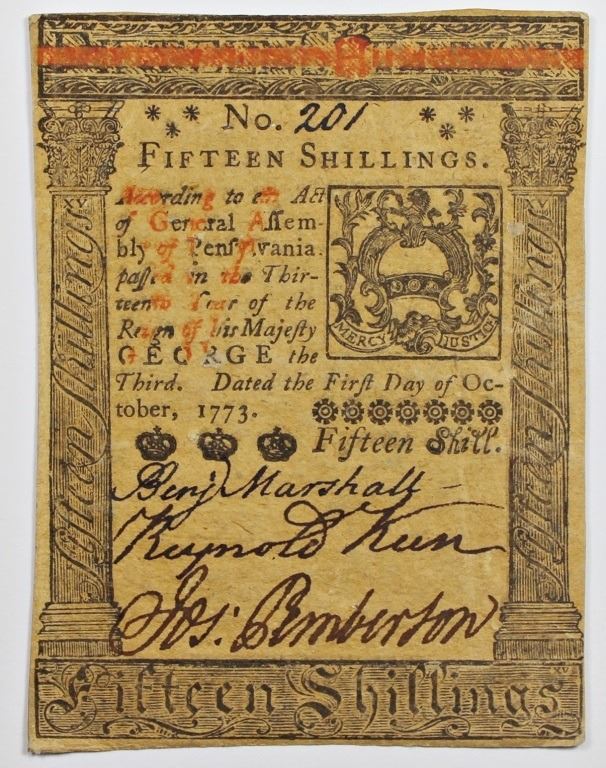 No. 201
FIFTEEN SHILLINGS.
XV
XV
According to an Act
of General Aſſem-
bly of Penſylvania.
paſſed in the Thir-
teenth Year of the
Reign of his Majeſty
GEORGE the
Third. Dated the Firſt Day of Oc-
tober, 1773.
MERCY JUSTICE
Fifteen Shill.
Benj Marshall
Reynold Keen
Jos: Pemberton
Fifteen Shillings
Fifteen Shillings
Fifteen Shillings